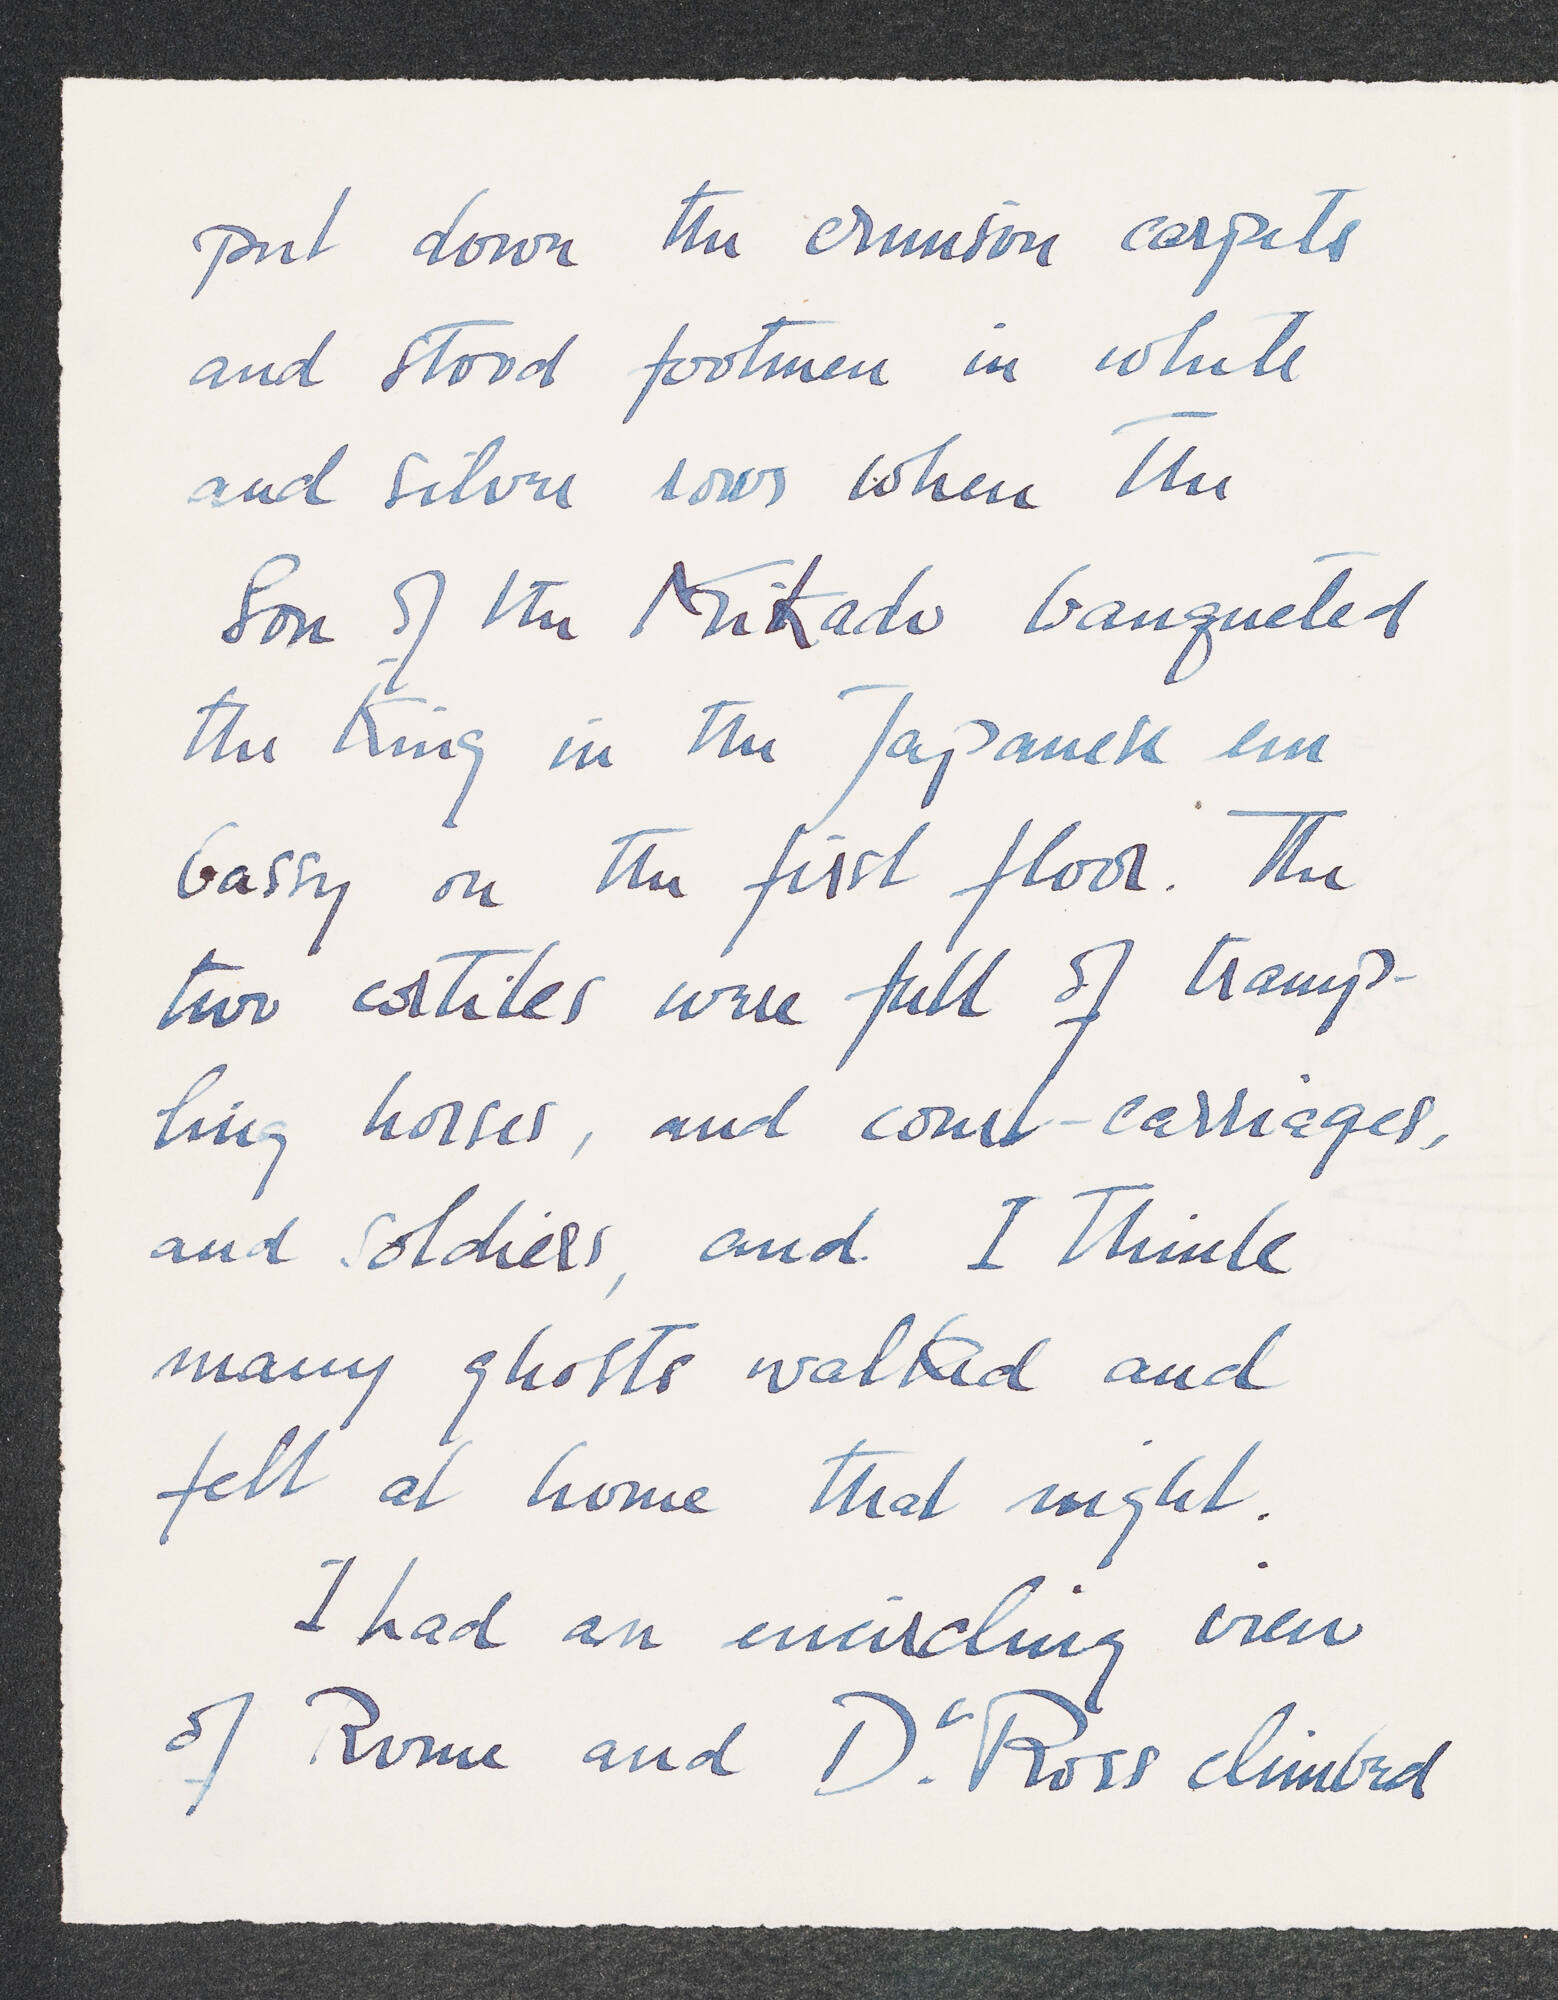 put down the crimson carpets
and stood footmen in white
and silver rows when the
Son of the Mikado banqueted
the King in the Japanese em
bassy on the first floor. The
two cortiles were full of tramp-
ling horses, and court-carriages,
and soldiers, and I think
many ghosts walked and
felt at home that night.
I had an encircling view
of Rome and D.r Ross climbed